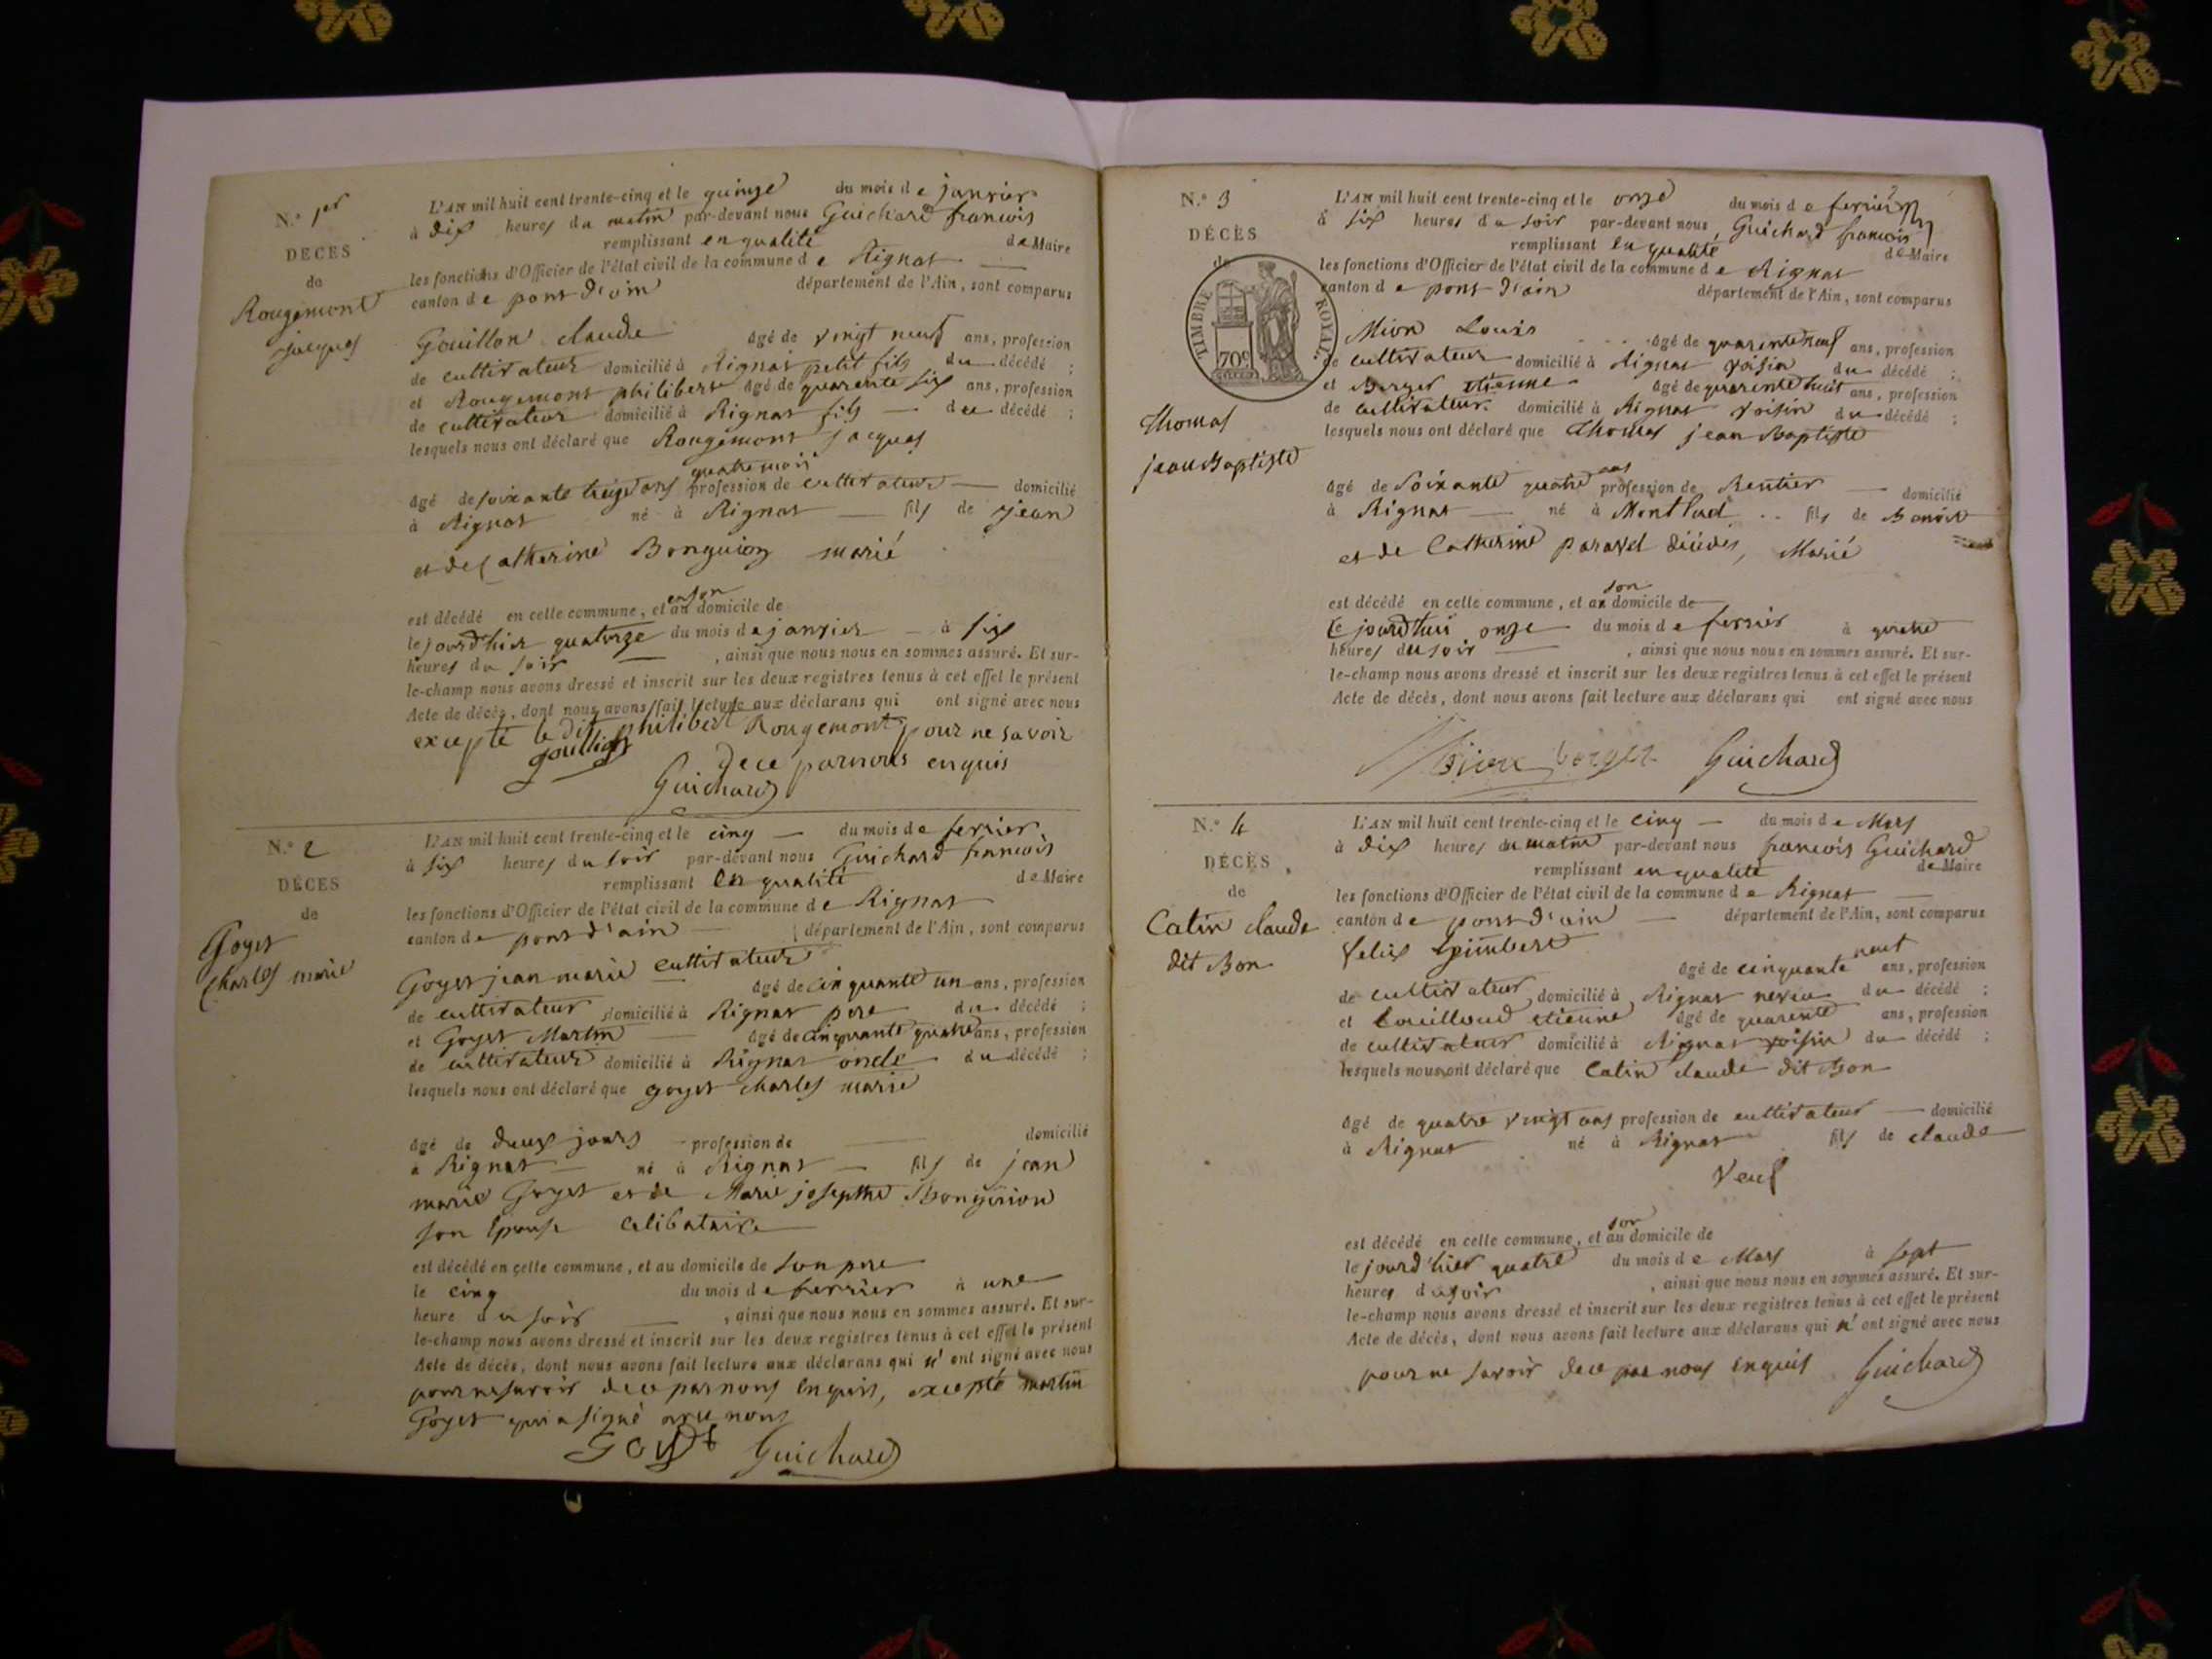 N.° 1er
DÉCÈS
de
Rougemont
jacques
L'AN mil huit cent trente-cinq et le quinze du mois de janvier
à dix heures du matin par-devant nous Guichard francois
remplissant en qualité de Maire
les fonctions d'Officier de l'état civil de la commune de Rignat
canton de pont d'ain département de l'Ain, sont comparus
Gouillon claude âgé de vingt neuf ans, profession
de cultivateur domicilié à Rignat petit fils du décédé ;
et Rougemont philibert âgé de quarente six ans, profession
de cultivateur domicilié à Rignat fils du décédé ;
lesquels nous ont déclaré que Rougemont jacques
quatre mois
âgé de soixante treize ans profession de cultivateur domicilié
à Rignat né à Rignat fils de jean
et de Catherine Bonguion marié
en son
est décédé en cette commune, et au domicile de
le jourd'hier quatorze du mois de janvier à six
heures du soir , ainsi que nous nous en sommes assuré. Et sur-
le-champ nous avons dressé et inscrit sur les deux registres tenus à cet effet le présent
Acte de décès, dont nous avons fait lecture aux déclarans qui ont signé avec nous
excepté le dit philibert Rougemont pour ne savoir
de ce par nous enquis
gouillon
Guichard
N.° 2
DÉCÈS
de
Goyet
Charles marie
L'AN mil huit cent trente-cinq et le cinq du mois de fevrier
à six heures du soir par-devant nous Guichard francois
remplissant en qualité de Maire
les fonctions d'Officier de l'état civil de la commune de Rignat
canton de pont d'ain département de l'Ain, sont comparus
Goyet jean marie cultivateur
âgé de cinquante un ans, profession
de cultivateur domicilié à Rignat pere du décédé ;
et Goyet Martin âgé de cinquante quatre ans, profession
de cultivateur domicilié à Rignat oncle du décédé ;
lesquels nous ont déclaré que goyet charles marie
âgé de deux jours profession de domicilié
à Rignat né à Rignat fils de jean
marie Goyet et de Marie josepthe Bonguion
son epouse celibataire
est décédé en cette commune, et au domicile de son pere
le cinq du mois de fevrier à une
heure du soir , ainsi que nous nous en sommes assuré. Et sur-
le-champ nous avons dressé et inscrit sur les deux registres tenus à cet effet le présent
Acte de décès, dont nous avons fait lecture aux déclarans qui n' ont signé avec nous
pour ne savoir de ce par nous enquis, excepté martin
Goyet qui a signé avec nous
Goyet Guichard
N.° 3
DÉCÈS
de
TIMBRE ROYAL.
70c
Thomas
jean Baptiste
L'AN mil huit cent trente-cinq et le onze du mois de fevrier
à six heures du soir par-devant nous, Guichard francois
remplissant en qualité de Maire
les fonctions d'Officier de l'état civil de la commune de Rignat
canton de pont d'ain département de l'Ain, sont comparus
Mion Louis âgé de quarente neuf ans, profession
de cultivateur domicilié à Rignat voisin du décédé ;
et Berger etienne âgé de quarente huit ans, profession
de cultivateur domicilié à Rignat voisin du décédé ;
lesquels nous ont déclaré que Thomas jean Baptiste
ans
âgé de Soixante quatre profession de Rentier domicilié
à Rignat né à Montluel fils de Benoit
et de Catherine décédés, Marié
son
est décédé en cette commune, et au domicile de
le jourd'hui onze du mois de fevrier à quatre
heures du soir , ainsi que nous nous en sommes assuré. Et sur-
le-champ nous avons dressé et inscrit sur les deux registres tenus à cet effet le présent
Acte de décès, dont nous avons fait lecture aux déclarans qui ont signé avec nous
berger Guichard
N.° 4
DÉCÈS
de
Catin claude
dit Bon
L'AN mil huit cent trente-cinq et le cinq du mois de Mars
à dix heures du matin par-devant nous francois Guichard
remplissant en qualité de Maire
les fonctions d'Officier de l'état civil de la commune de Rignat
canton de pont d'ain département de l'Ain, sont comparus
neuf
âgé de cinquante ans, profession
de cultivateur domicilié à Rignat neveu du décédé ;
et Couilloud etienne âgé de quarente ans, profession
de cultivateur domicilié à Rignat voisin du décédé ;
lesquels nous ont déclaré que Catin claude dit Bon
âgé de quatre vingt ans profession de cultivateur domicilié
à Rignat né à Rignat fils de claude
Veuf
son
est décédé en cette commune, et au domicile de
le jourd'hier quatre du mois de Mars à sept
heures du soir , ainsi que nous nous en sommes assuré. Et sur-
le-champ nous avons dressé et inscrit sur les deux registres tenus à cet effet le présent
Acte de décès, dont nous avons fait lecture aux déclarans qui n' ont signé avec nous
pour ne savoir de ce par nous enquis Guichard